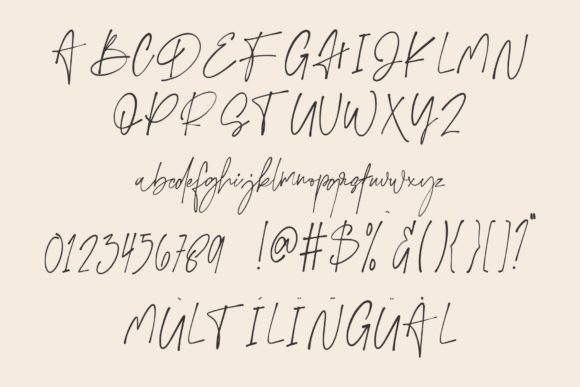 A B C D E F G H I J K L M N
Q P R S T U V W X Y Z
abcdefghijklmnopqrstuvwxyz
0123456789 !@#$%&(){}[]?"
MÙLTÍLÏÑGÜÀL